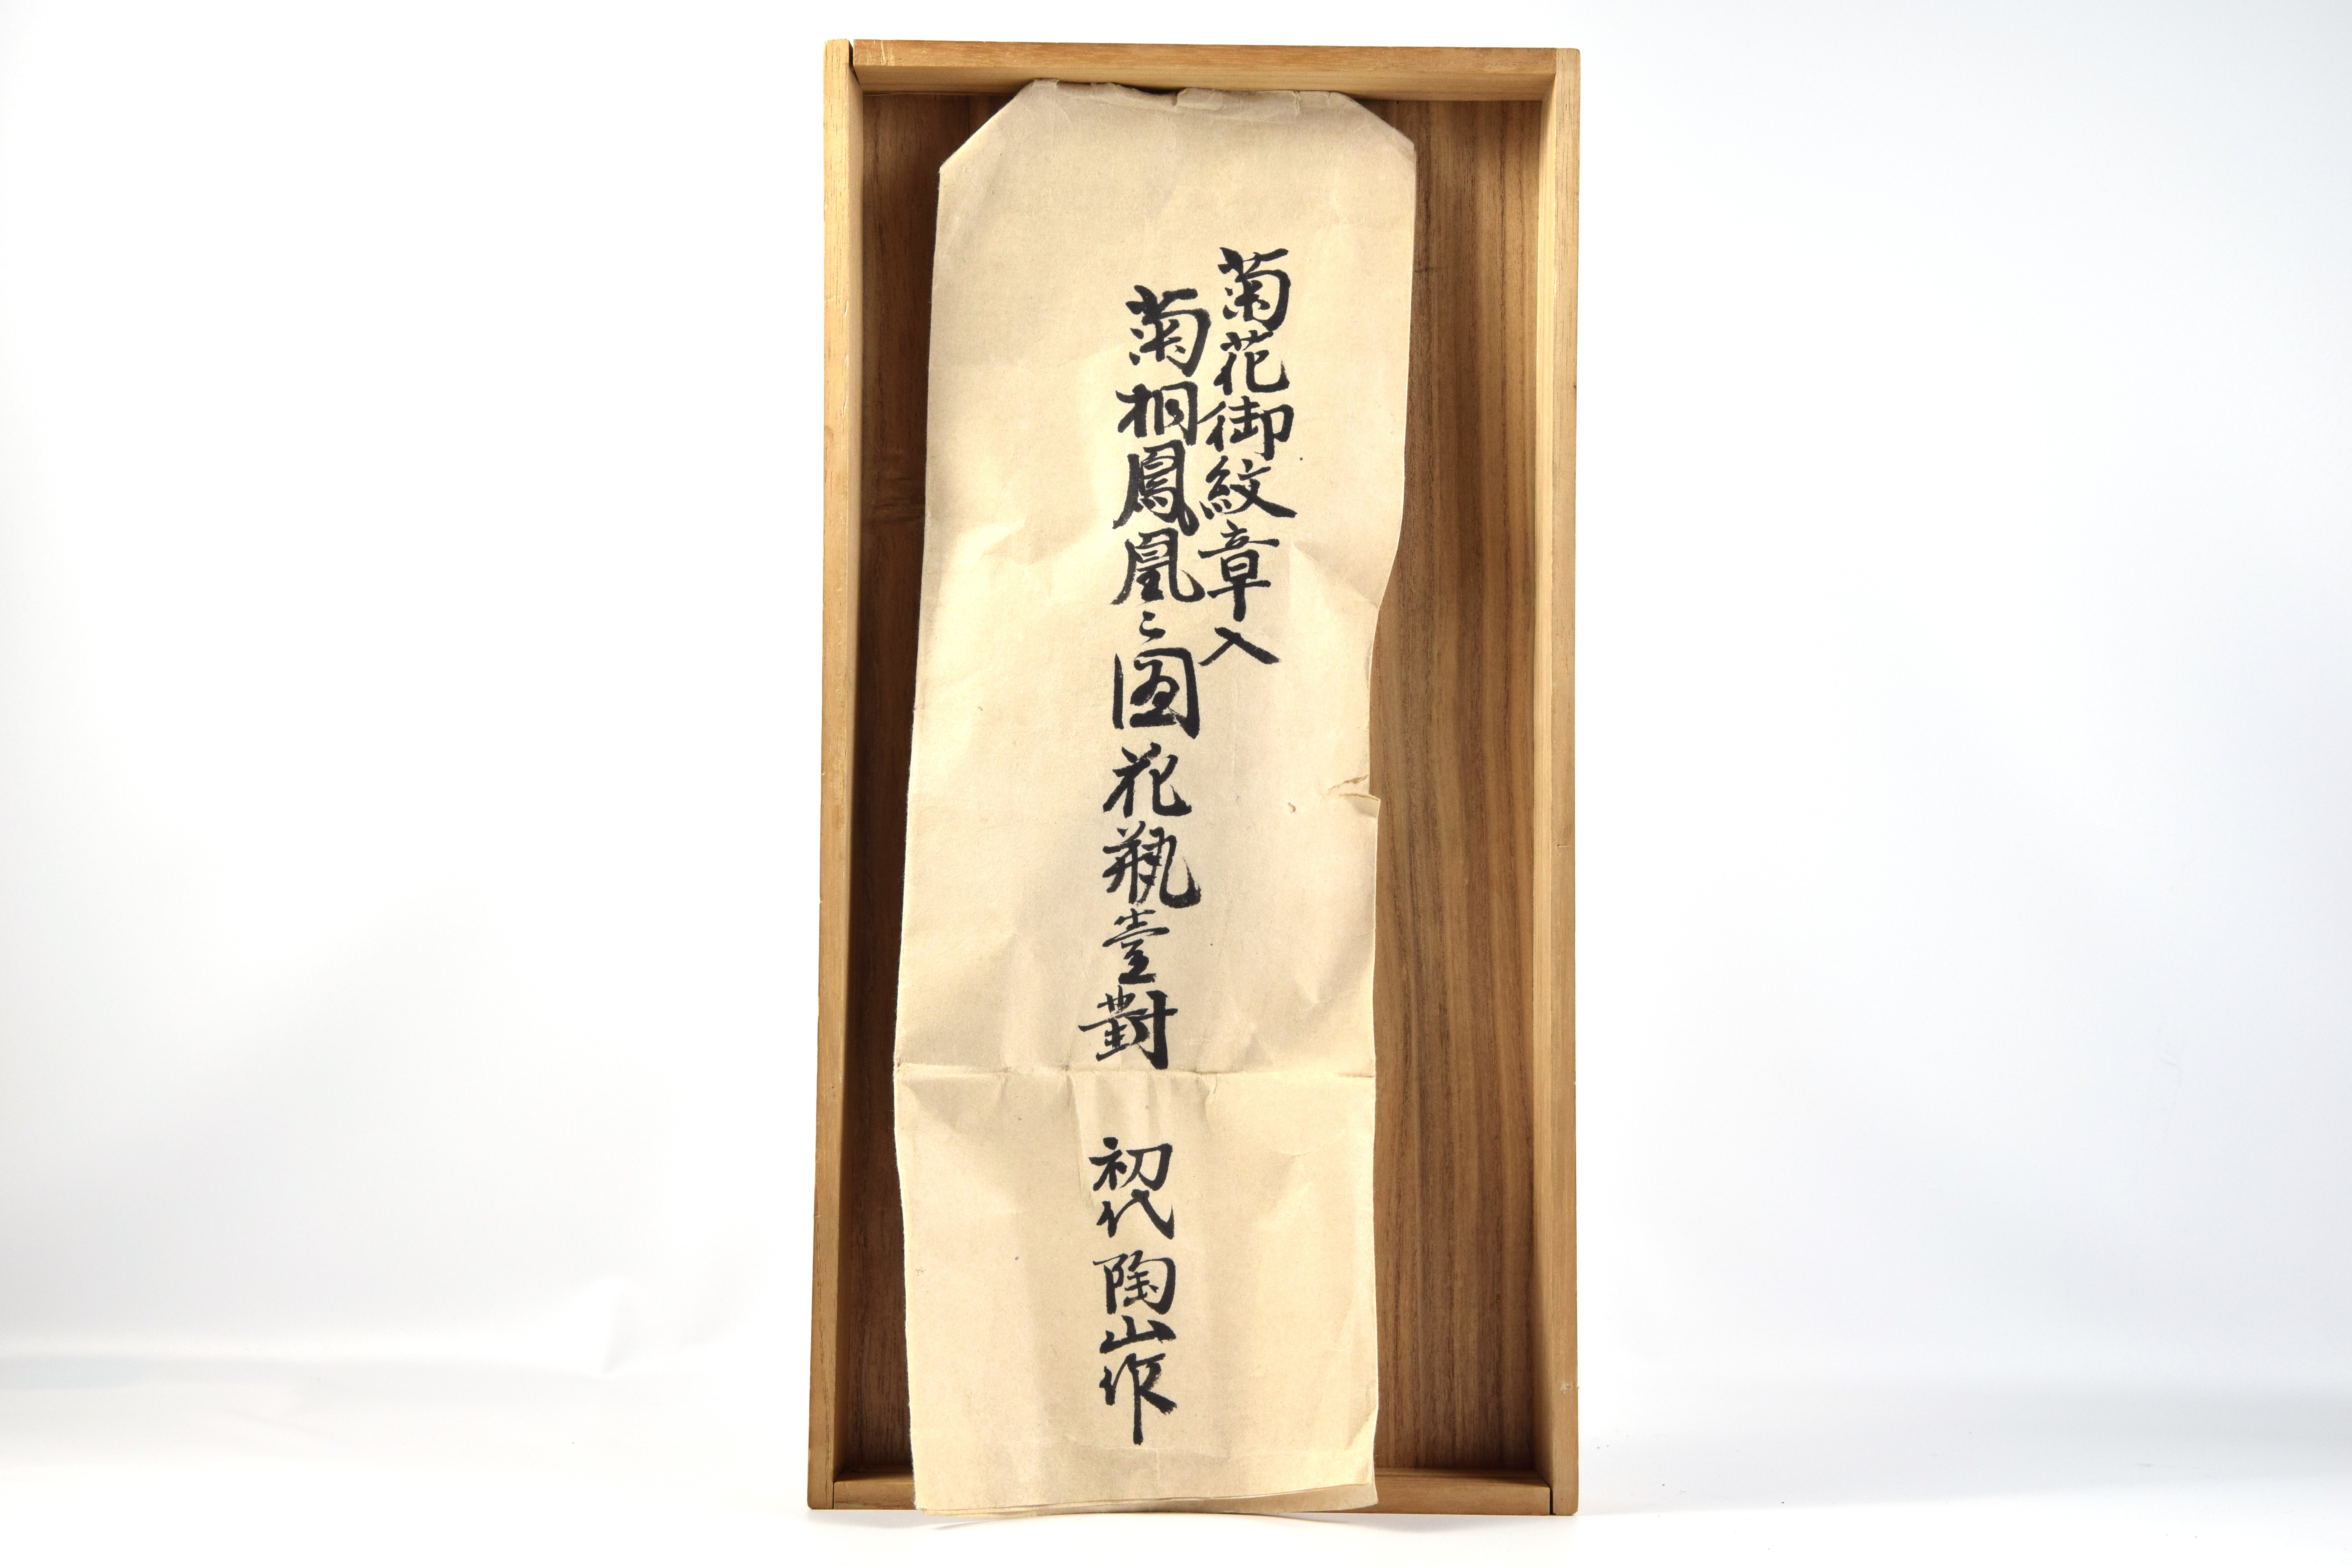 菊花御紋章入
菊桐鳳凰之図花瓶壹對
初代陶山作